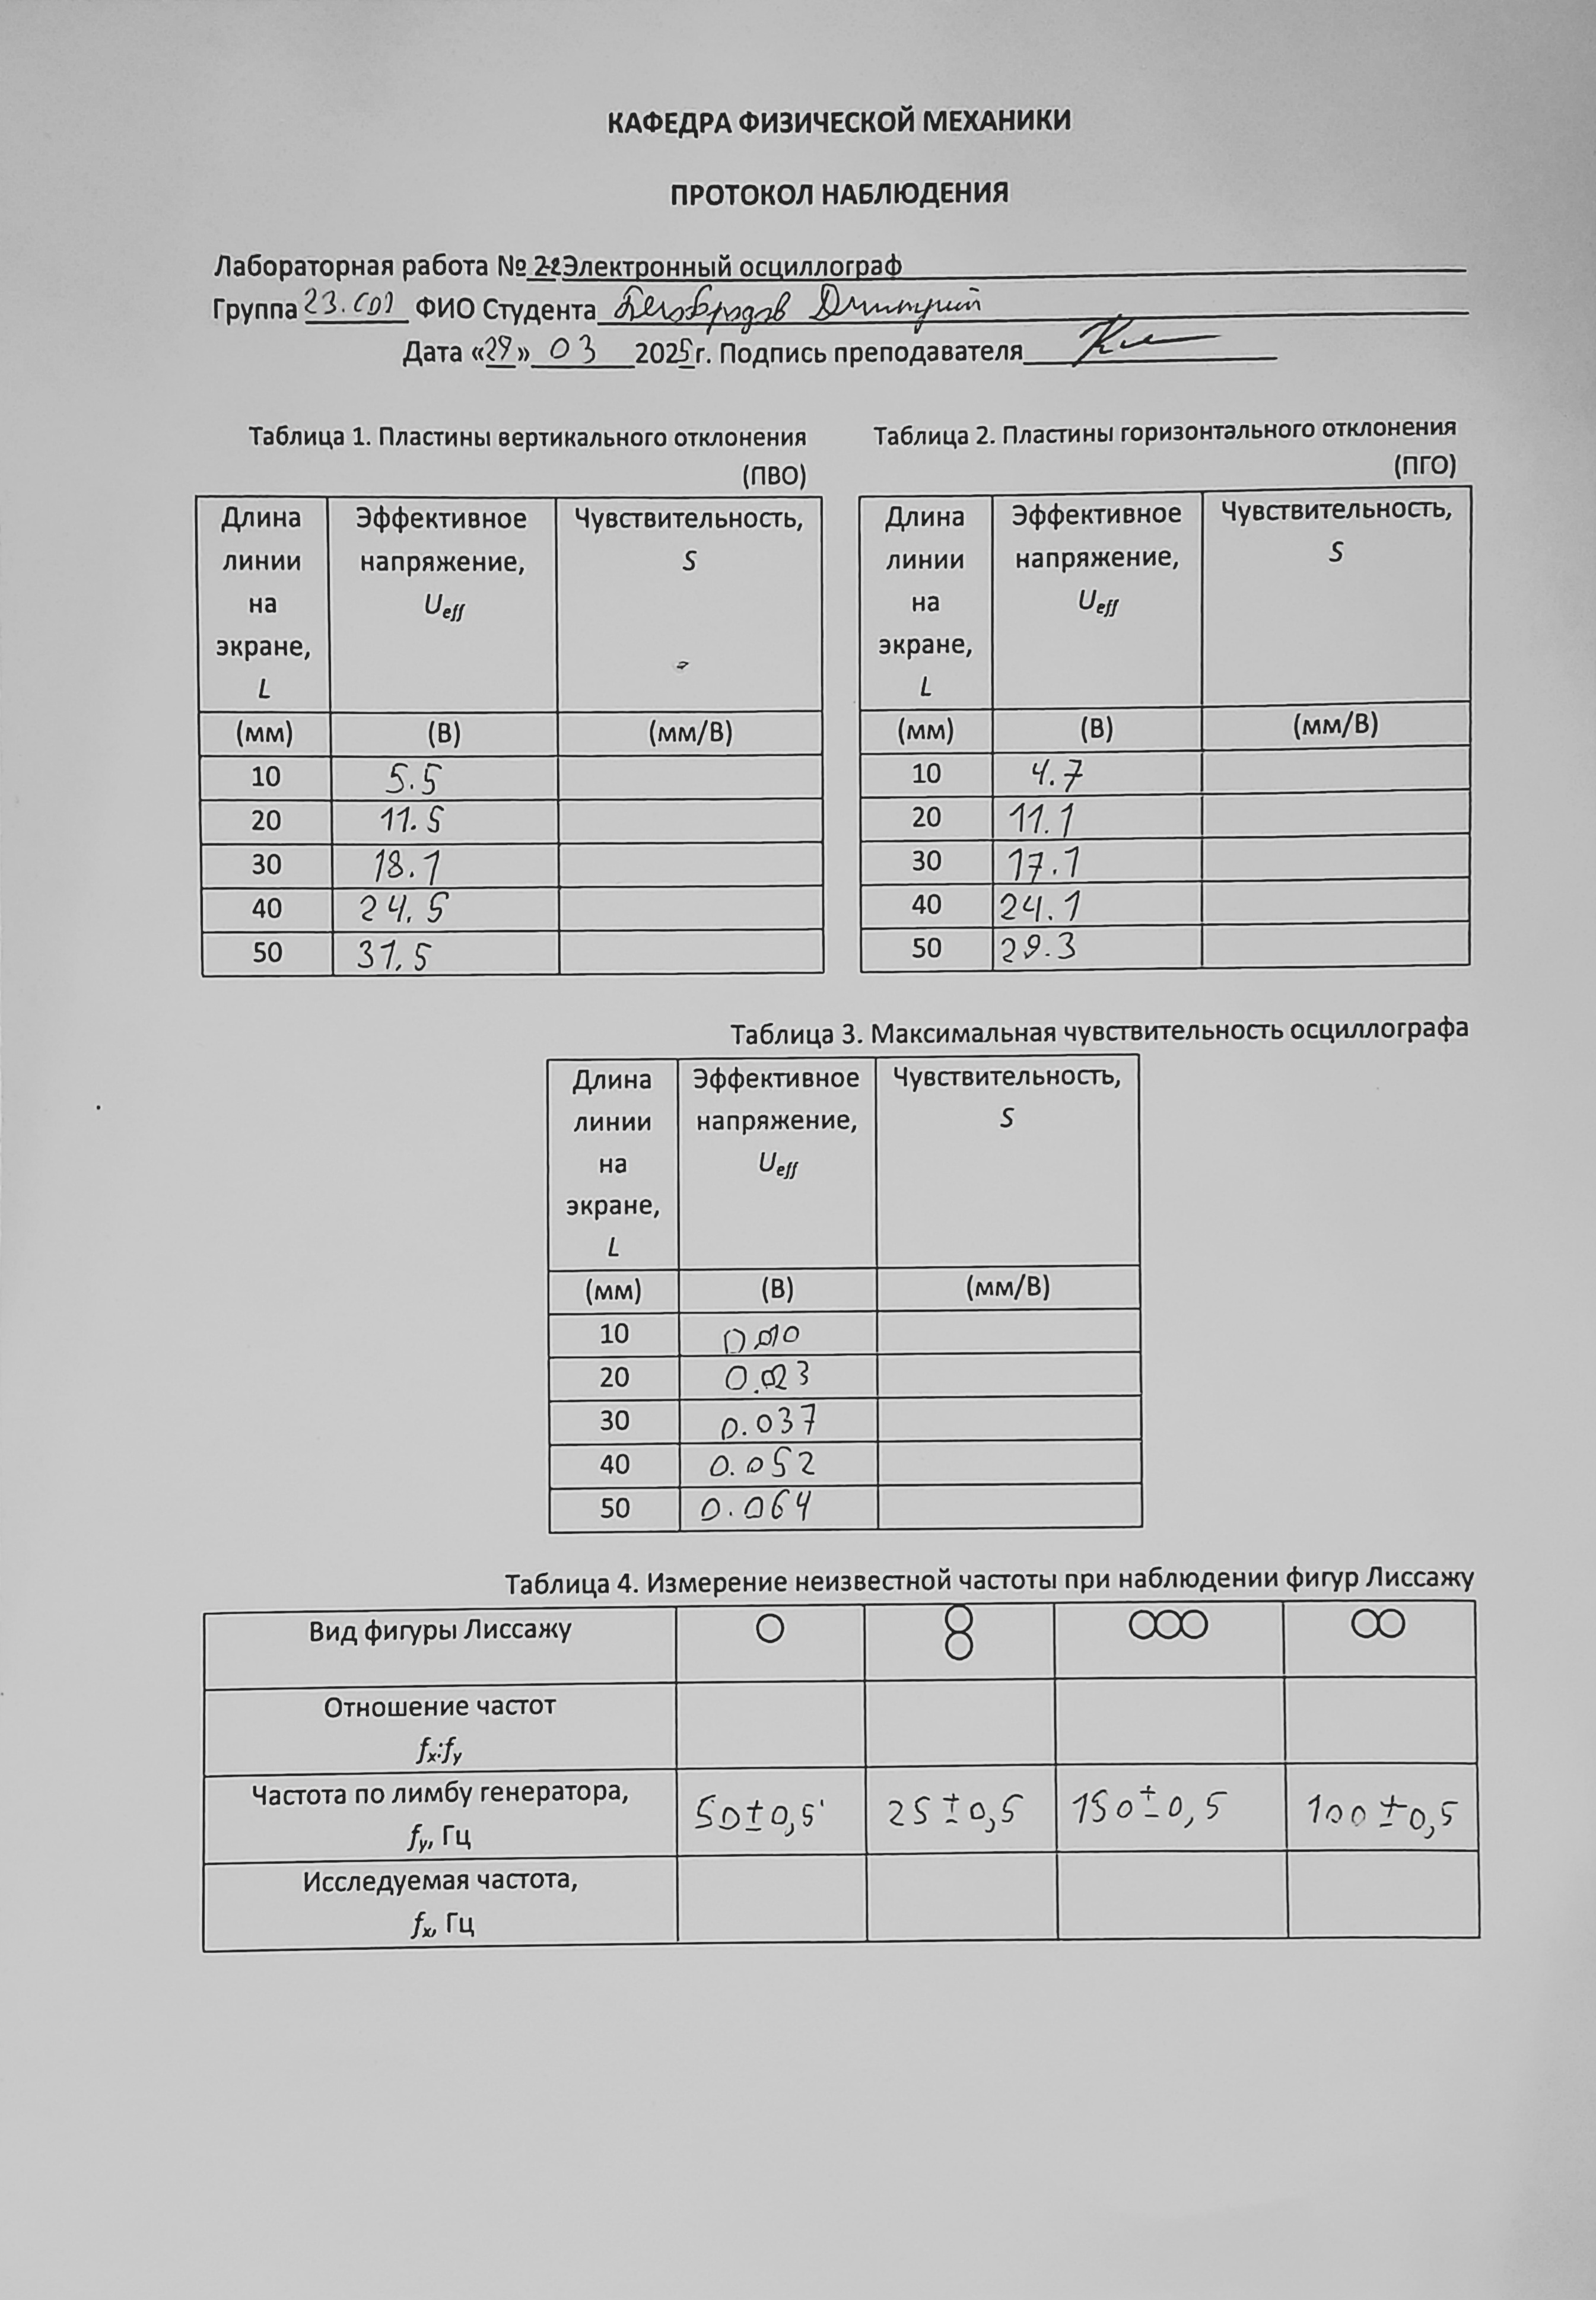 КАФЕДРА ФИЗИЧЕСКОЙ МЕХАНИКИ
ПРОТОКОЛ НАБЛЮДЕНИЯ
Лабораторная работа № Электронный осциллограф
Группа 23.С01 ФИО Студента Белобродов Дмитрий
Дата «29» 03 2025г. Подпись преподавателя
Таблица 1. Пластины вертикального отклонения
(ПВО)
Длина линии на экране, L Эффективное напряжение, Ueff Чувствительность, S
(мм) (В) (мм/В)
10 5.5
20 11.5
30 18.1
40 24.5
50 31.5
Таблица 2. Пластины горизонтального отклонения
(ПГО)
Длина линии на экране, L Эффективное напряжение, Ueff Чувствительность, S
(мм) (В) (мм/В)
10 4.7
20 11.1
30 17.1
40 24.1
50 29.3
Таблица 3. Максимальная чувствительность осциллографа
Длина линии на экране, L Эффективное напряжение, Ueff Чувствительность, S
(мм) (В) (мм/В)
10 0.010
20 0.023
30 0.037
40 0.052
50 0.064
Таблица 4. Измерение неизвестной частоты при наблюдении фигур Лиссажу
Вид фигуры Лиссажу
Отношение частот
fx:fy
Частота по лимбу генератора,
fy, Гц 50±0,5 25±0,5 150±0,5 100±0,5
Исследуемая частота,
fx, Гц